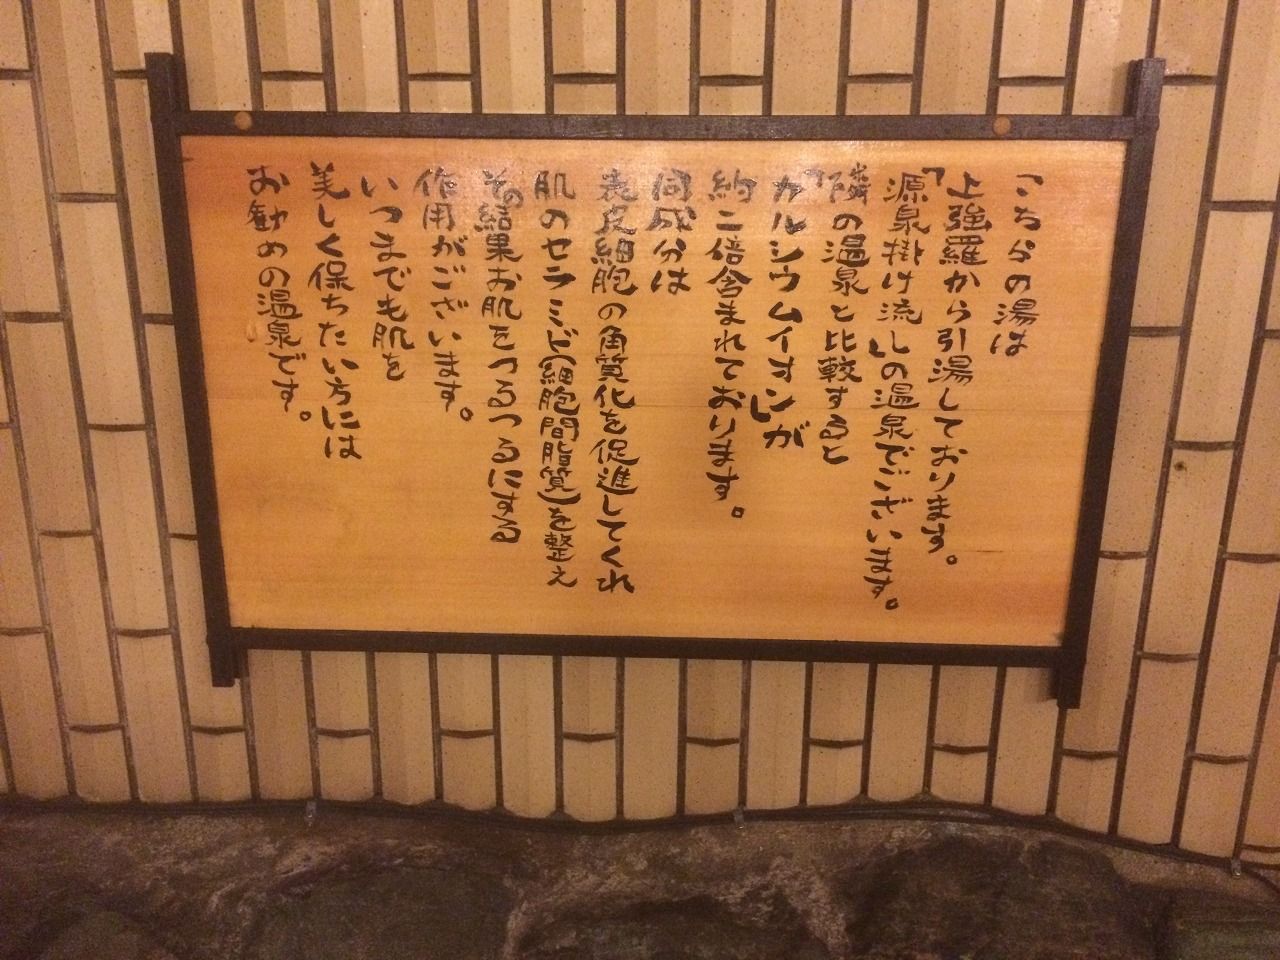 こちらの湯は
上強羅から引湯しております。
「源泉掛け流し」の温泉でございます。
隣の温泉と比較すると
「カルシウムイオン」が
約二倍含まれております。
同成分は
表皮細胞の角質化を促進してくれ
肌のセラミド(細胞間脂質)を整え
その結果お肌をつるつるにする
作用がございます。
いつまでも肌を
美しく保ちたい方には
お勧めの温泉です。